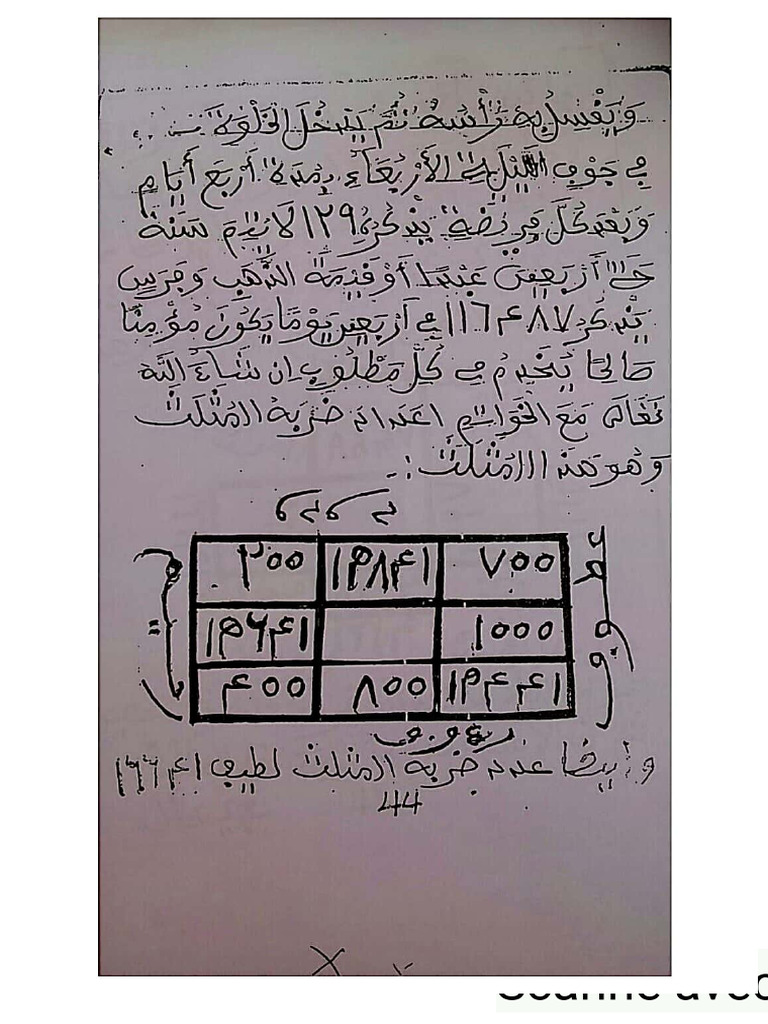 وَيَغْسِلُ بِهِ رَأْسَهُ ثُمَّ يَدْخُلُ الخَلْوَةَ
فِي جَوْفِ اللَّيْلِ الأَرْبِعَاءِ بِمُدَّةِ أَرْبَعَ أَيَّامٍ
وَبَعْدَ كُلِّ فَرِيضَةٍ يَذْكُرُ ١٢٩ سَنَة
أَرْبَعِينَ عَبْدًا أَوْ قِيمَةَ الذَّهَبِ وَفَرَسٍ
يَذْكُرُ ١١٦٤٨٧ فِي أَرْبَعِينَ يَوْمًا يَكُونُ مُؤْمِنًا
صَالِحًا يُخْدِمُ فِي كُلِّ مَطْلُوبٍ إِن شَاءَ اللَّهُ
تَعَالَى مَعَ الخَوَاتِمِ اعداد ضَرْبَةُ المُثَلَّث
وَهُوَ هَذِهِ المُثَلَّث :
٣٠٠ ١٣٨٤١ ٧٠٠
١٣٦٤١ ١٠٠٠
٤٠٠ ٨٠٠ ١٣٤٤١
وَأَيْضًا عدد ضربة المثلث لطيف ١٣٦٦٤١
44
X
Scanné avec